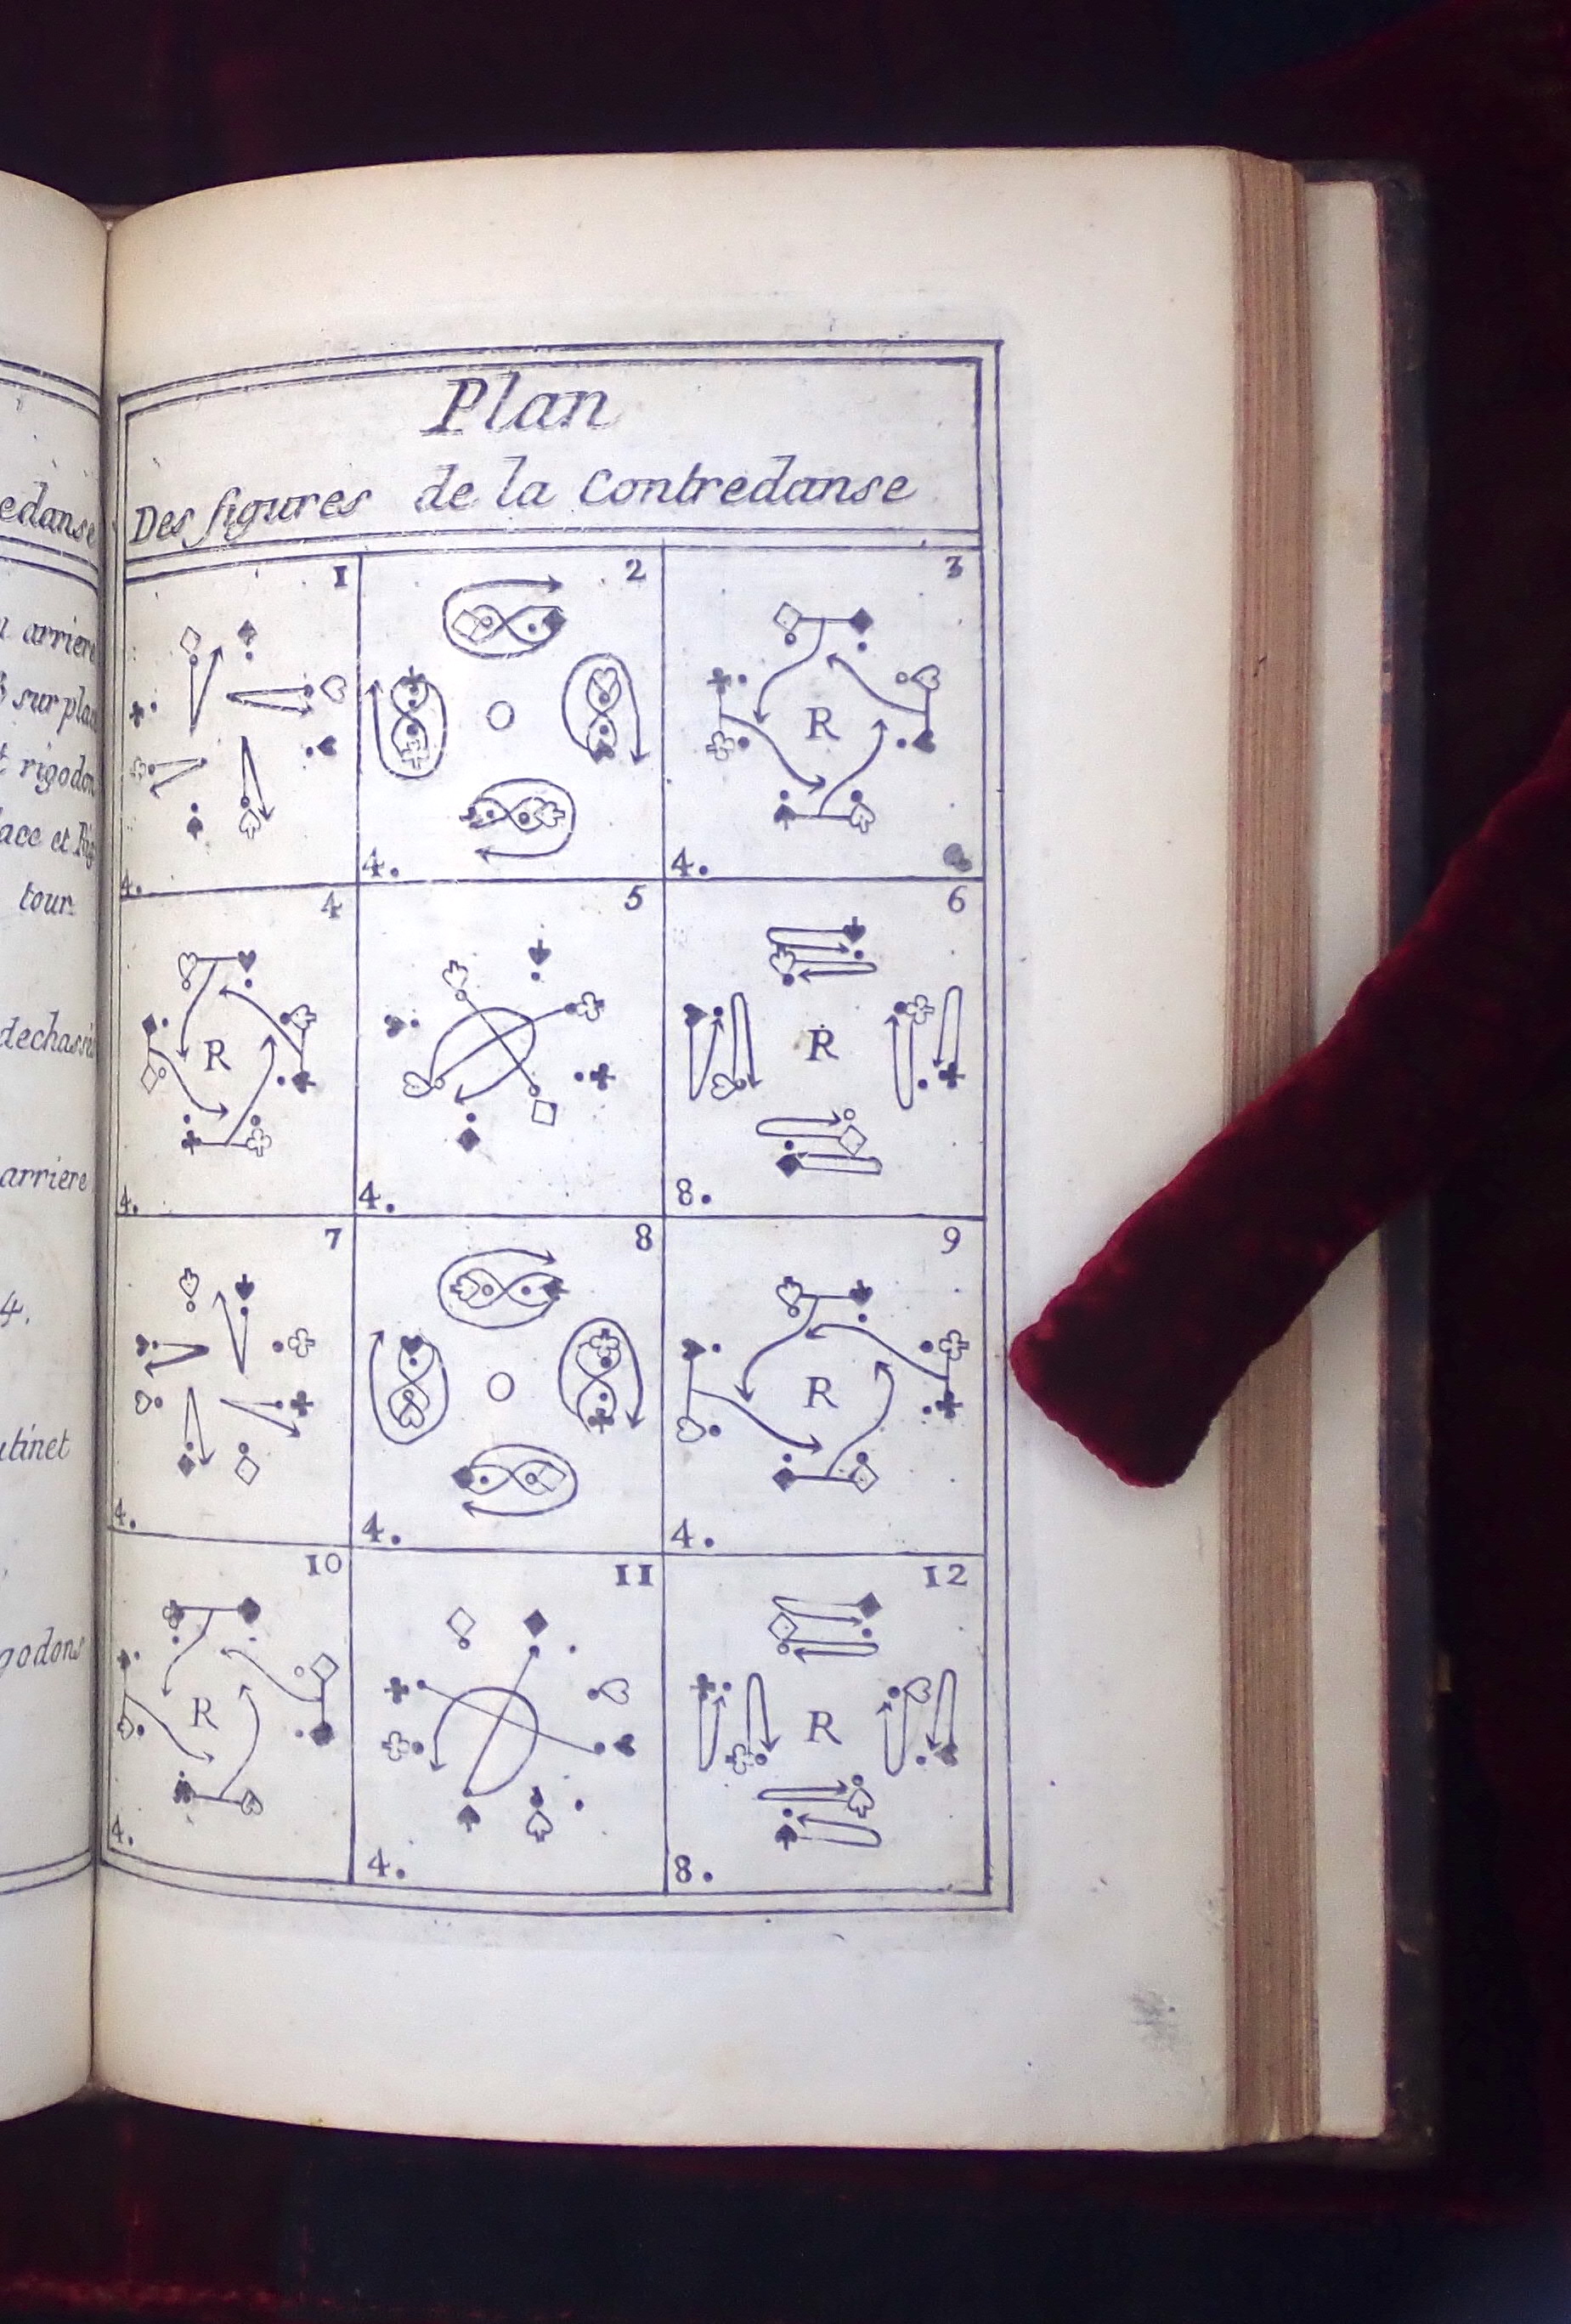 edanse
arriere
sur
rigodon
ace et
tour
dechassé
arriere
4.
utinet
godons
Plan
Des figures de la Contredanse
1 2 3
4. 4. R 4.
4 5 6
R 4. 4. R 8.
7 8 9
4. 4. R 4.
10 11 12
R 4. 4. R 8.